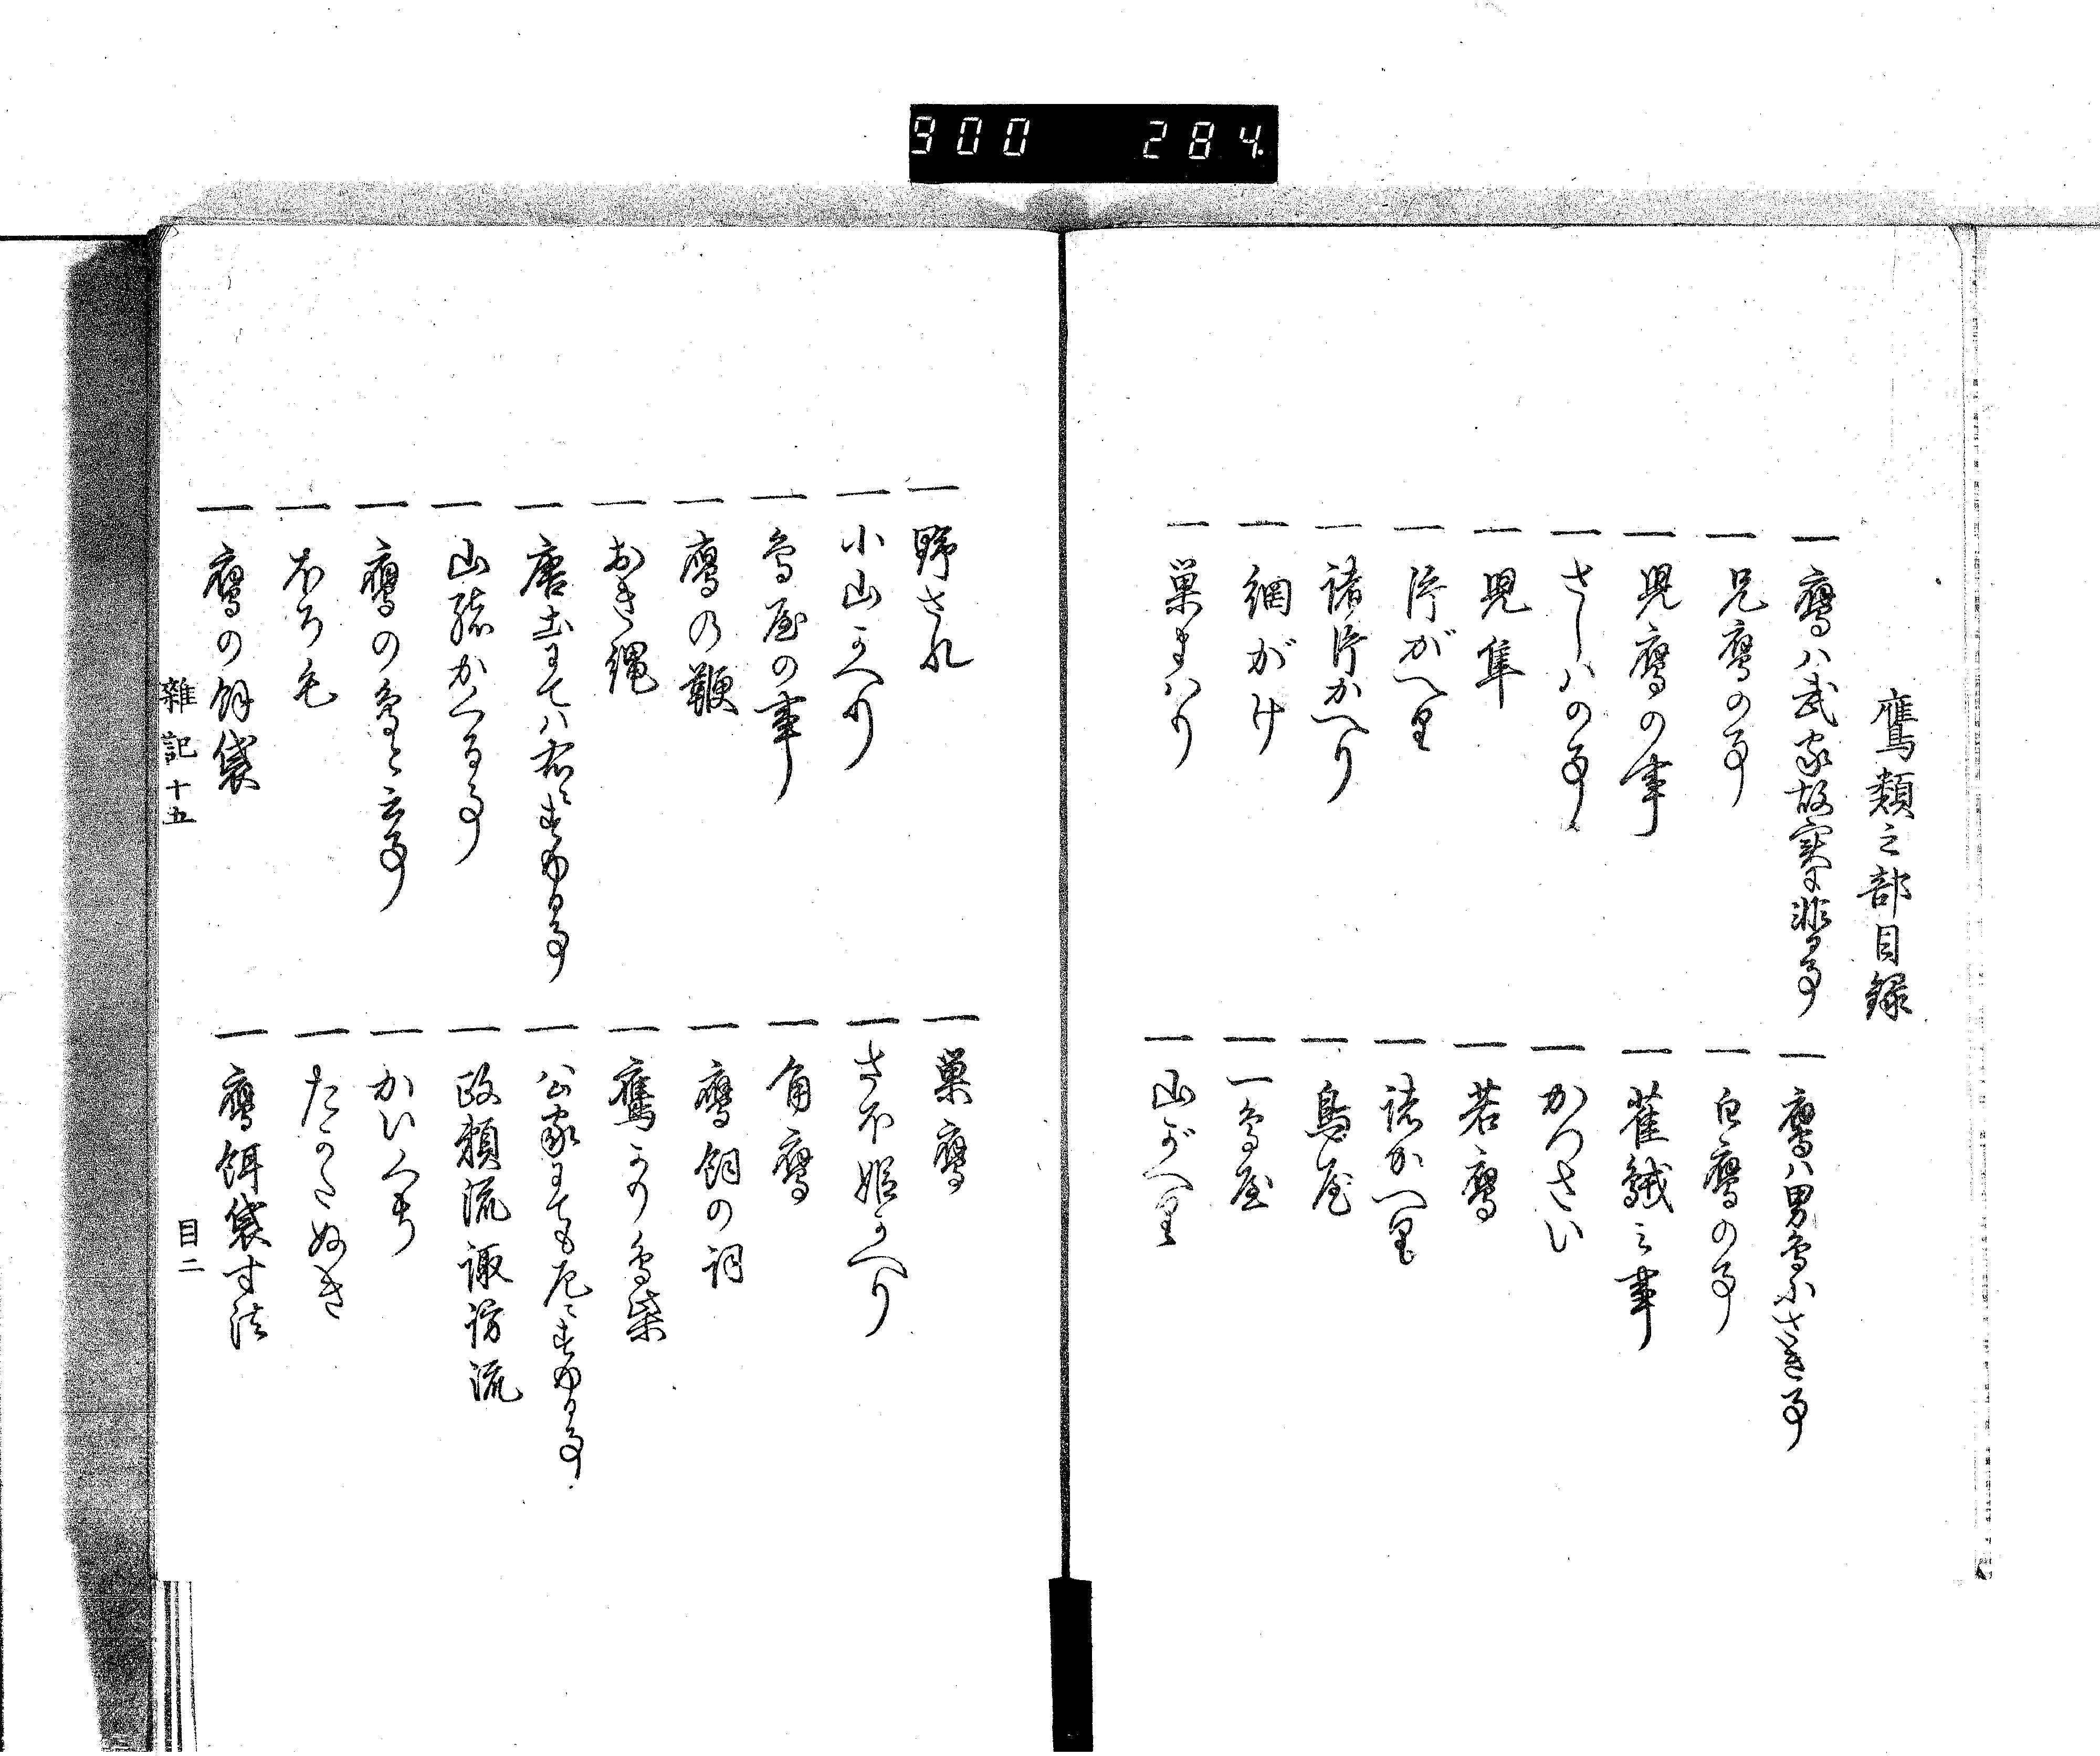 900 284.
鷹類之部目録
一 鷹ハ武家故実に非る事
一 鷹ハ男鳥小さき事
一 兄鷹の事
一 白鷹の事
一 児鷹の事
一 雀之事
一 さしハの事
一 かつさい
一 児隼
一 若鷹
一 片がへり
一 諸かへり
一 諸片かへり
一 鳥屋
一 網がけ
一 一鳥屋
一 巣まハり
一 山がへり
一 野され
一 巣鷹
一 小山かへり
一 さほ姫かへり
一 鳥屋の事
一 角鷹
一 鷹の鞭
一 鷹飼の詞
一 おき縄
一 鷹より鳥柴
一 唐土にてハ右にすゆる事
一 公家にても左にすゆる事
一 山緒かくる事
一 政頼流諏訪流
一 鷹の鳥と云事
一 かいくち
一 ほろ毛
一 たかたぬき
一 鷹の餌袋
一 鷹餌袋寸法
雜記十五
目二